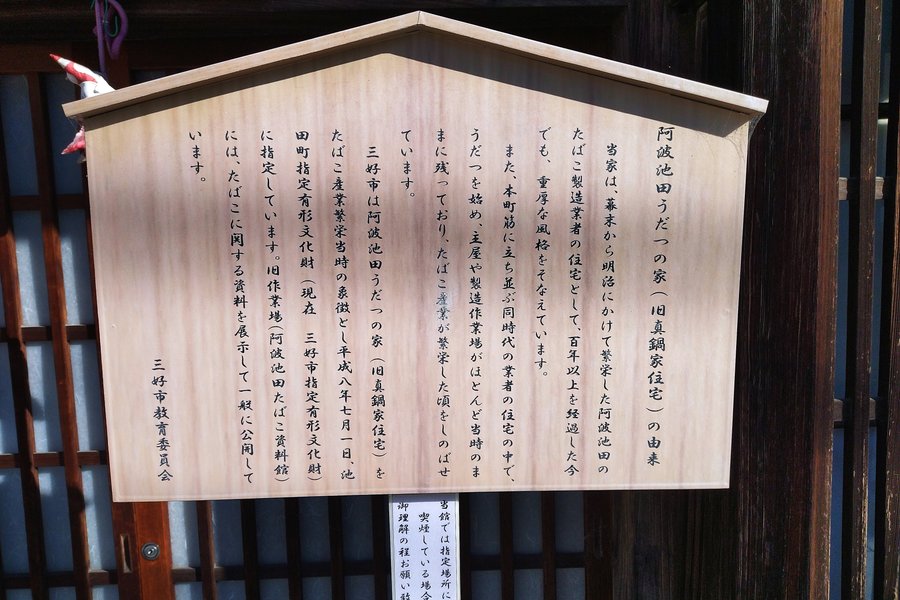 阿波池田うだつの家(旧真鍋家住宅)の由来
当家は、幕末から明治にかけて繁栄した阿波池田の
たばこ製造業者の住宅として、百年以上を経過した今
でも、重厚な風格をそなえています。
また、本町筋に立ち並ぶ同時代の業者の住宅の中で、
うだつを始め、主屋や製造作業場がほとんど当時のま
まに残っており、たばこ産業が繁栄した頃をしのばせ
ています。
三好市は阿波池田うだつの家(旧真鍋家住宅)を
たばこ産業繁栄当時の象徴とし平成八年七月一日、池
田町指定有形文化財(現在 三好市指定有形文化財)
に指定しています。旧作業場(阿波池田たばこ資料館)
には、たばこに関する資料を展示して一般に公開して
います。
三好市教育委員会
当館では指定場所に
喫煙している場合
御理解の程お願い